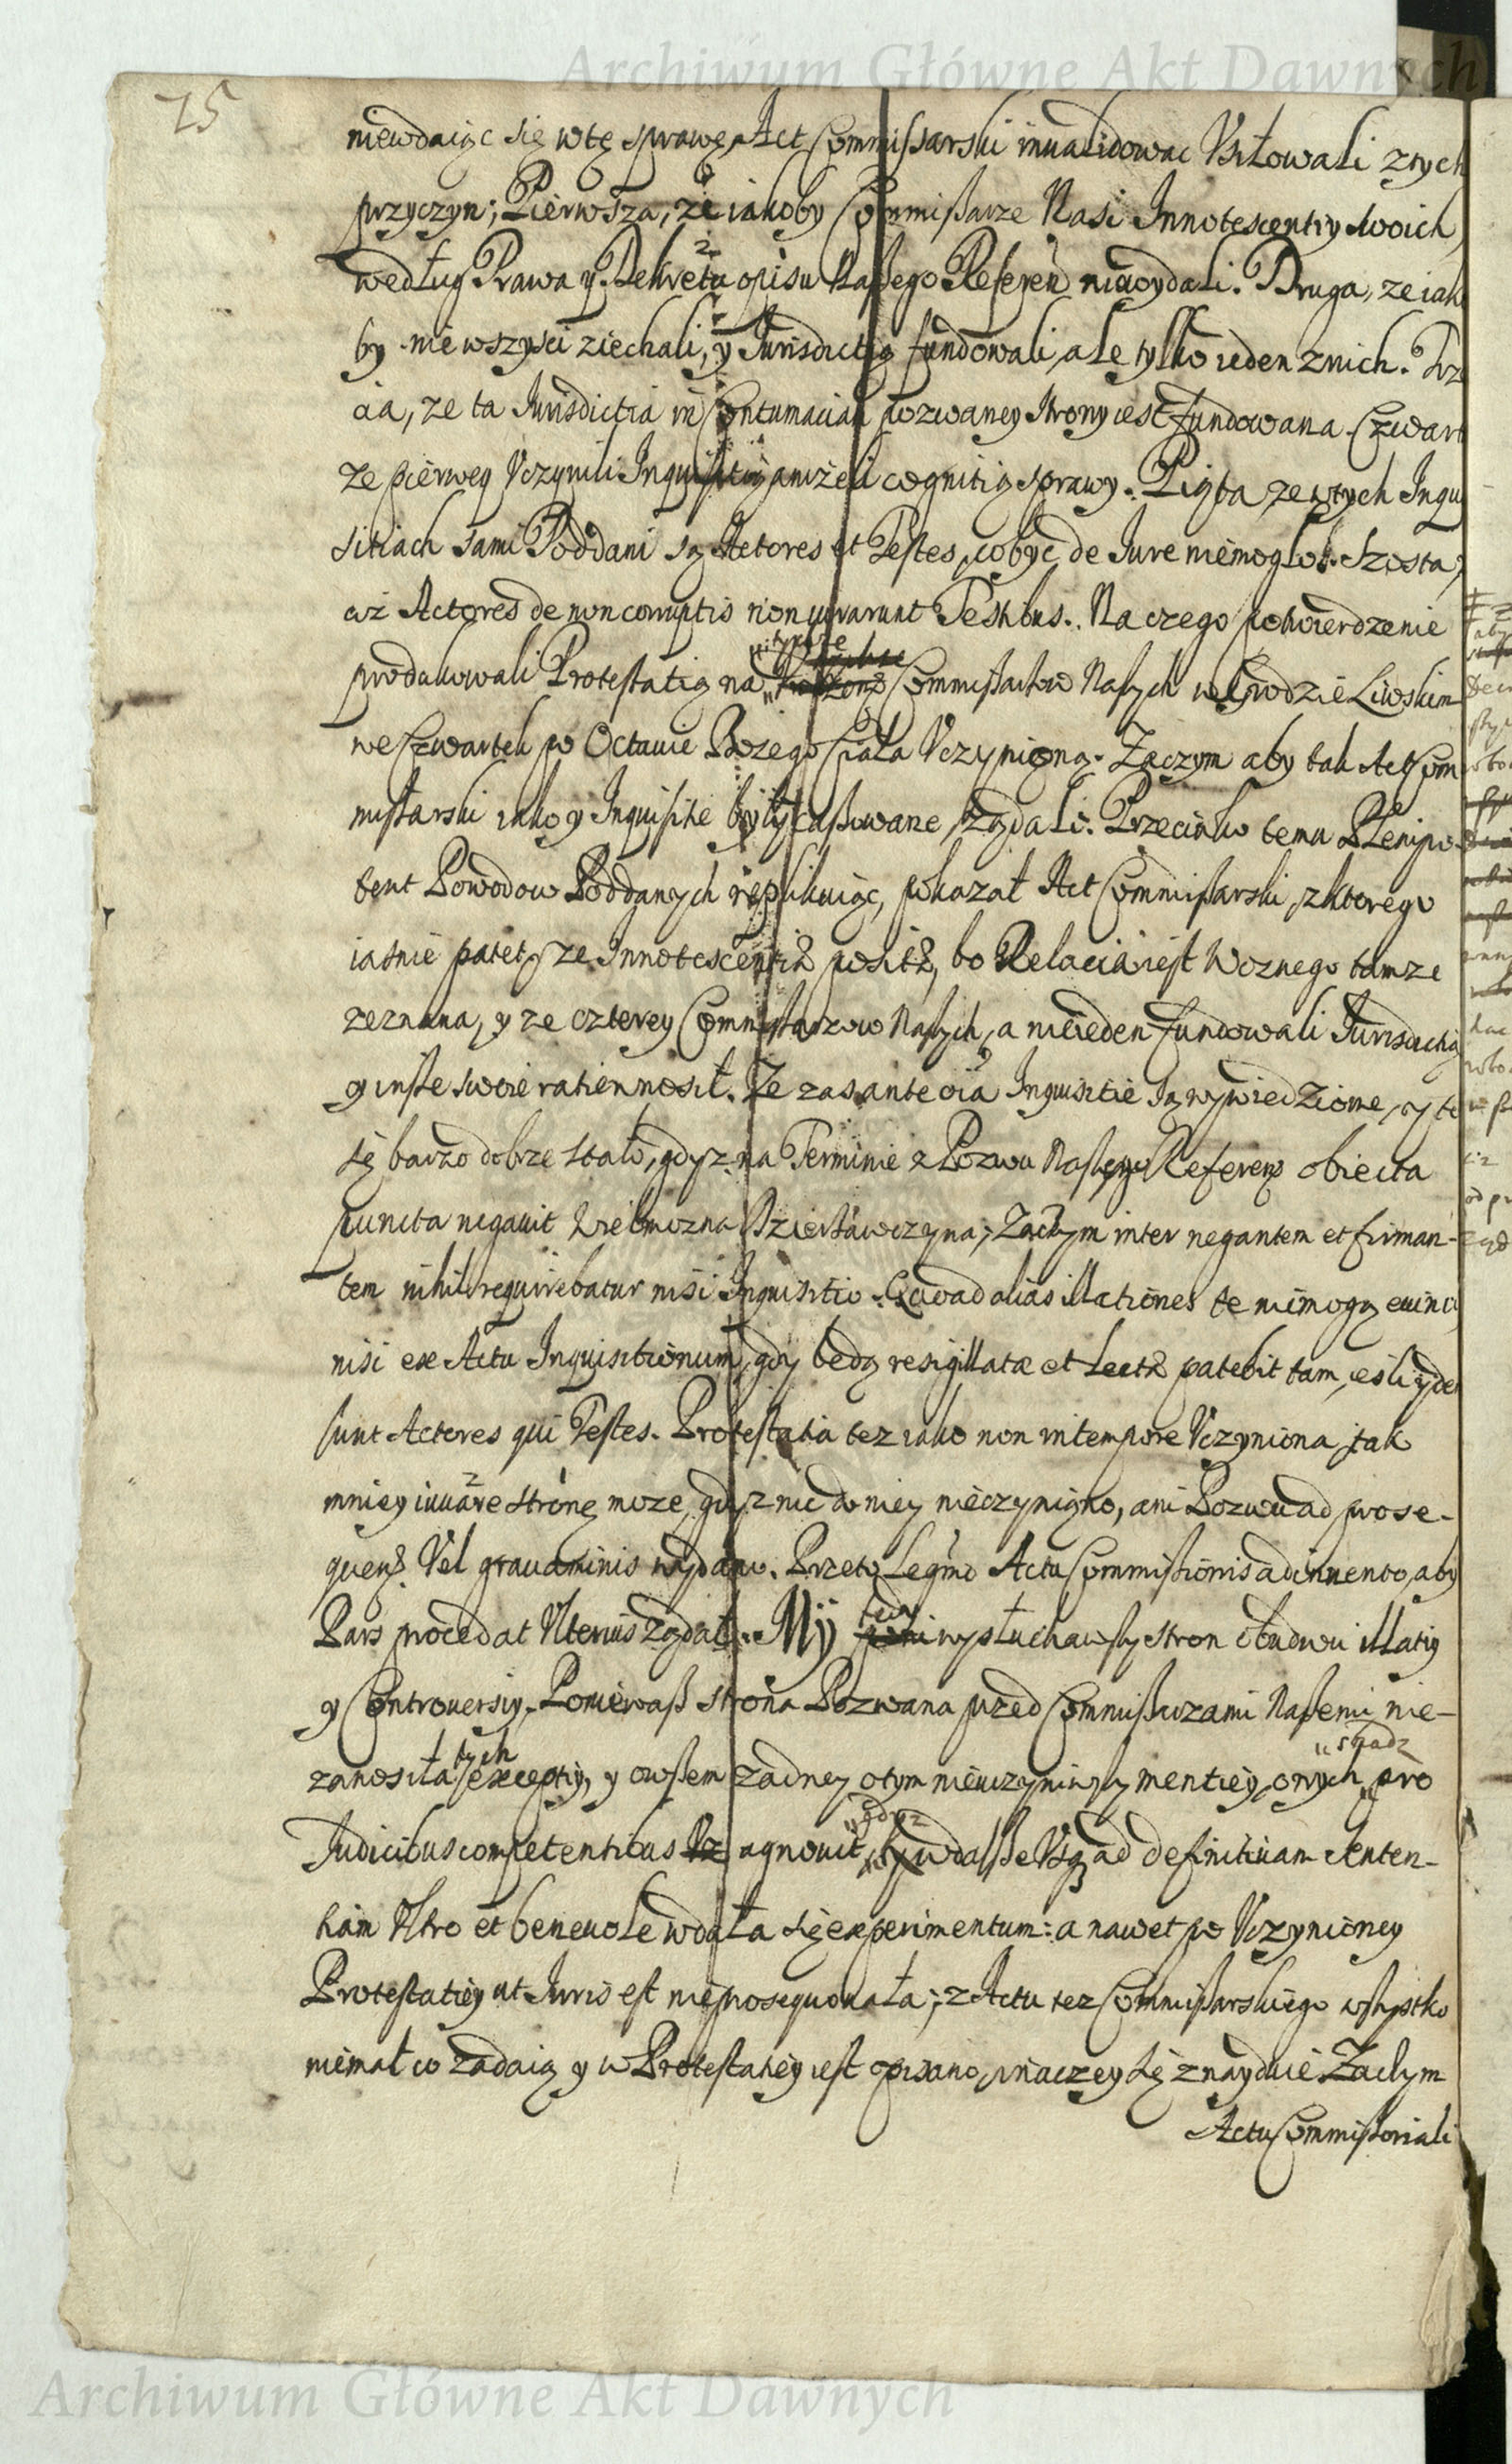 Archiwum Główne Akt Dawnych
75
niewdaiąc się wtę sprawę, Act Commissarski inualidowac Vsiłowali ztych
przyczyn; Pierwsza, ze iakoby Commißarze Nasi Innotescentiy swoich
według Prawa y Dekretu opisu Naßego Referen niewydali. Druga, ze iak
by nie wszyscy ziechali, y Jurisdictią fundowali, ale tylko ieden znich. Trz
cia, ze ta Jurisdictia in Contumaciam pozwaney Strony iest fundowana. Czwart
ze pierwey Vczynili Inquisitią aniżeli cognitią sprawy. Piąta ze wtych Inqui
sitiach sami Poddani są Actores et Testes, co byc de Iure niemogło. Szosta,
iż Actores de non corruptis non iurarunt Testibus. Na czego potwierdzenie
produkowali Protestatią na tychze Commissarzow Naszych w Grodzie Liwskim
we Czwartek po Octauie Bozego Ciała Vczynioną. Zaczym aby tak Act Com
mißarski iako y Inquisitie były cassowane, żądali. Przeciwko temu Plenipo
tent Powodow Poddanych replikuiąc, pokazał Act Commißarski, z ktorego
iasnie patet, ze Innotescentiæ positæ, bo Relacia iest Woznego tamze
zeznana, y ze czterey Commissarzow Naszych, a nieieden fundowali Jurisdictią
y insze swoie ratie wnosił. Ze zas ante oia Inquisitie są wywiedzione, y to
się barzo dobrze stało, gdyz na Terminie z Pozwu Naszego Referen obiecta
puncta negauit Wielmozna Dzierżawczyna; Zaczym inter negantem et firman-
tem nihil requirebatur nisi Inquisitio. Quoad alias illationes te niemogą euinci
nisi ex Actu Inquisitionum, gdy będą resigillatæ et lectæ patebit tam, iesli ijdem
sunt Actores qui Testes. Protestatia tez iako non in tempore Vczyniona, tak
mniey iuuare stronę moze, gdyz nic do niey nieczyniono, ani Pozwu ad prose-
quen. Vel grauaminis wydano. Przeto Legmo Actu Commissionis adinuento, aby
Pars procedat Vlterius żądał. My tedy wysłuchawszy stron obudwu illatiy
y Controuersiy. Poniewaß strona Pozwana przed Commissarzami Naßemi nie-
zanosiła tych exceptiy, y owßem zadney o tym nieuczyniwszy mentiey, onych pro
skądz
Judicibus competentibus agnouit, gdyz wdalsße Vsq ad definitiuam Senten-
tiam Vltro et beneuole wdała się experimentum: a nawet po Vczynioney
Protestatiey ut Iuris est nieprosequowała; z Actu tez Commissarskiego wszystko
niemal co zadaią y w Protestatiey iest opisano, inaczey się znayduie Zaczym
Actu Commissoriali
Archiwum Główne Akt Dawnych